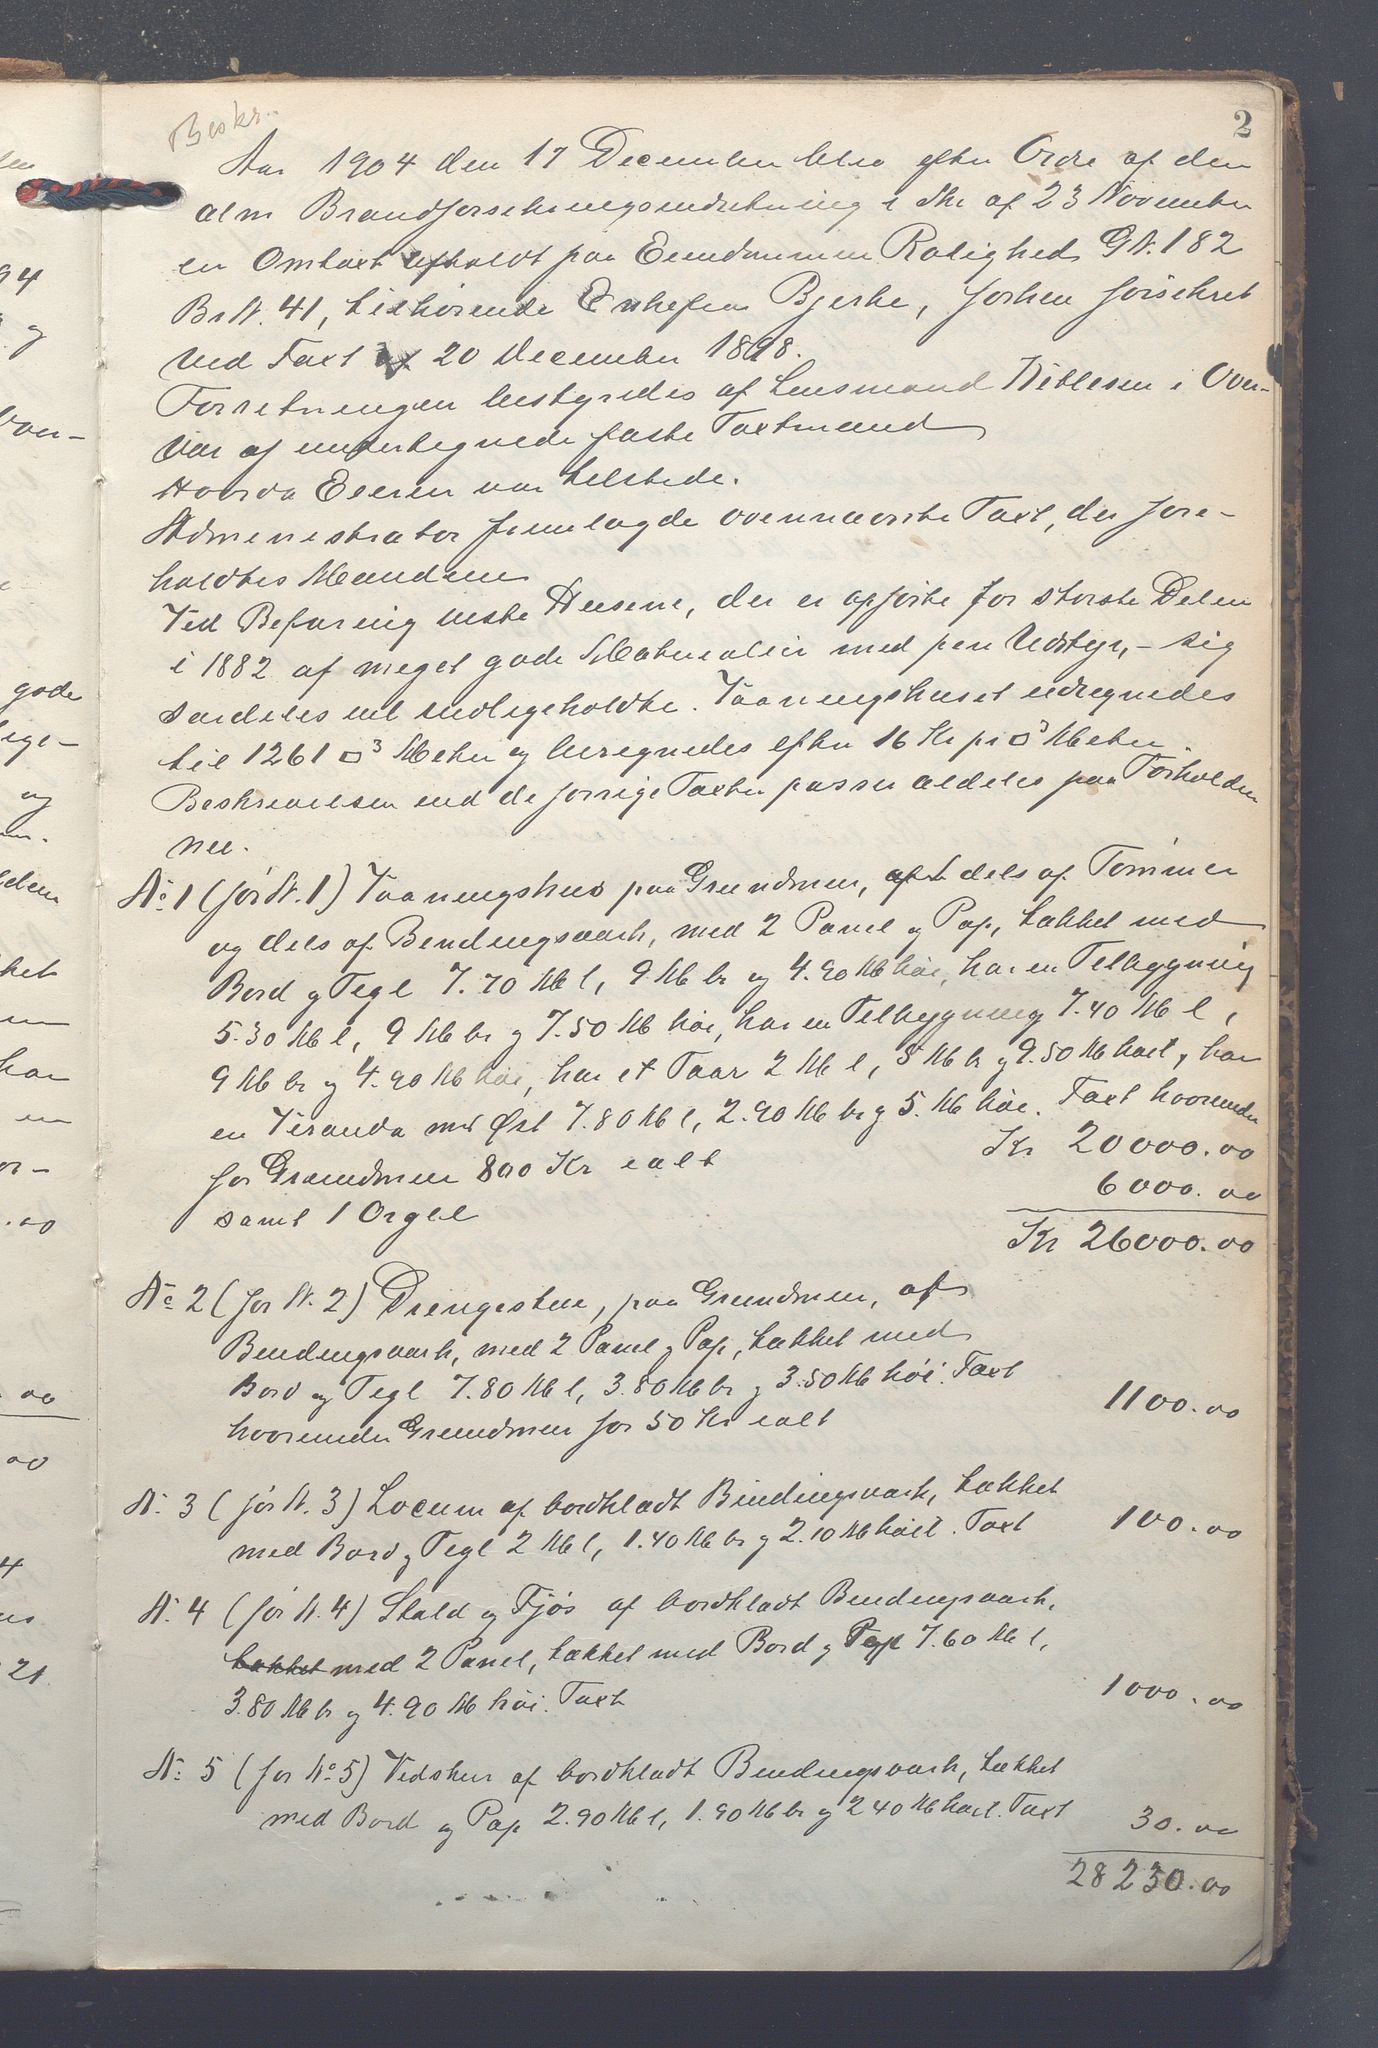 2
Beskr.
Aar 1904 den 17 December blev efter Ordre af den
alm Brandforsikringsindretning i Skr af 23 November
en Omtaxt afholdt paa Eiendommen Rolighed, GN. 182
BrN. 41, tilhørende Enkefru Bjerke, forhen forsikret
ved Taxt af 20 December 1898.
Forretningen bestyredes af Lensmand Kiblesen i Over-
vær af undertegnede faste Taxtmænd
Hvorda Eieren var tilstede.
Administrator fremlagde ovennævnte Taxt, der fore-
holdtes Mændene
Ved Befaring viste Husene, der er opførte for største Delen
i 1882 af meget gode Materialier med pen Udstyr, - sig
særdeles vel vedligeholdte. Vaaningshuset udregnedes
til 1261 □³ Meter og beregnedes efter 16 Kr pr □³ Meter.
Beskrivelsen ved de forrige Taxter passer aldeles paa Forholdene
nu.
No 1 (før N. 1) Vaaningshus paa Grundmur, dels af Tømmer
og dels af Bindingsværk, med 2 Panel og Pap, tækket med
Bord og Tegl 7.70 M l, 9 M br og 4.90 M høi, har en Tilbygning
5.30 M l, 9 M br og 7.50 M høi, har en Tilbygning 7.40 M l,
9 M br og 4.90 M høi, har et Taar 2 M l, 5 M br og 9.50 M høit, har
en Veranda mod Øst 7.80 M l, 2.90 M br og 5. M høi. Taxt hvorunder
for Grundmur 800 Kr ialt Kr 20000.00
samt 1 Orgel 6000.00
Kr 26000.00
No 2 (før N. 2) Drengestue, paa Grundmur, af
Bindingsværk, med 2 Panel og Pap, tækket med
Bord og Tegl 7.80 M l, 3.80 M br og 3.50 M høi. Taxt
hvorunder Grundmur for 50 Kr ialt 1100.00
N. 3 (før N. 3) Locum af bordklædt Bindingsværk, tækket
med Bord og Tegl 2 M l, 1.40 M br og 2.10 M høit. Taxt 100.00
N. 4 (før N. 4) Stald og Fjøs af bordklædt Bindingsværk,
tækket med 2 Panel, tækket med Bord og Tegl 7.60 M l,
3.80 M br og 4.90 M høi. Taxt 1000.00
No 5 (før No 5) Vedskur af bordklædt Bindingsværk, tækket
med Bord og Pap 2.90 M l, 1.90 M br og 2 40 M høit. Taxt 30.00
28230.00